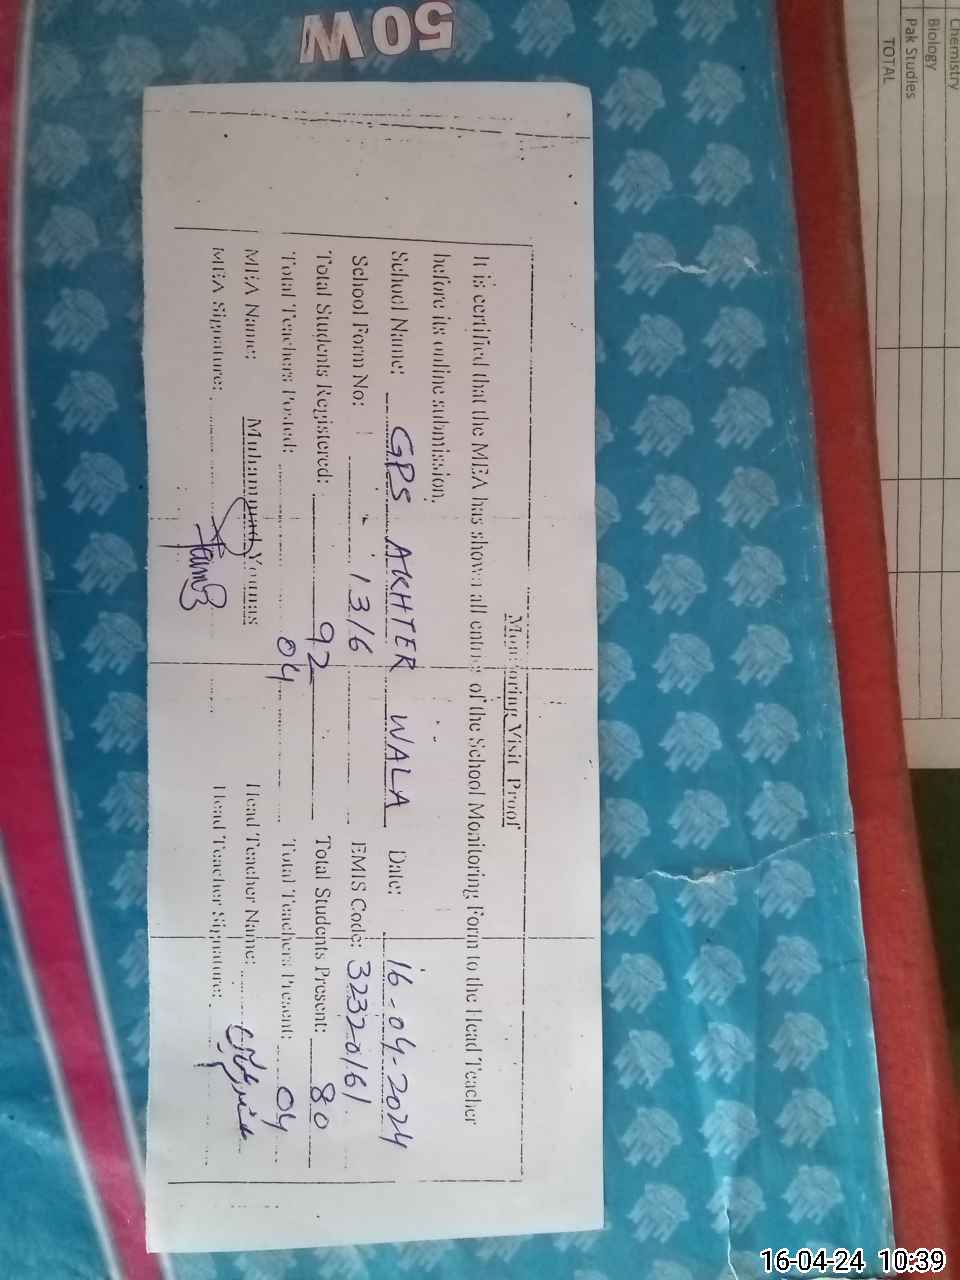 50W
Chemistry
Biology
Pak Studies
TOTAL
Monitoring Visit Proof
It is certified that the MEA has shown all entries of the School Monitoring Form to the Head Teacher
before its online submission.
School Name: GPS AKHTER WALA Date: 16-04-2024
School Form No: 1316 EMIS Code: 32320161
Total Students Registered: 92 Total Students Present: 80
Total Teachers Posted: 04 Total Teachers Present: 04
MEA Name: Muhammad Younas Head Teacher Name:
MEA Signature: Head Teacher Signature:
16-04-24 10:39